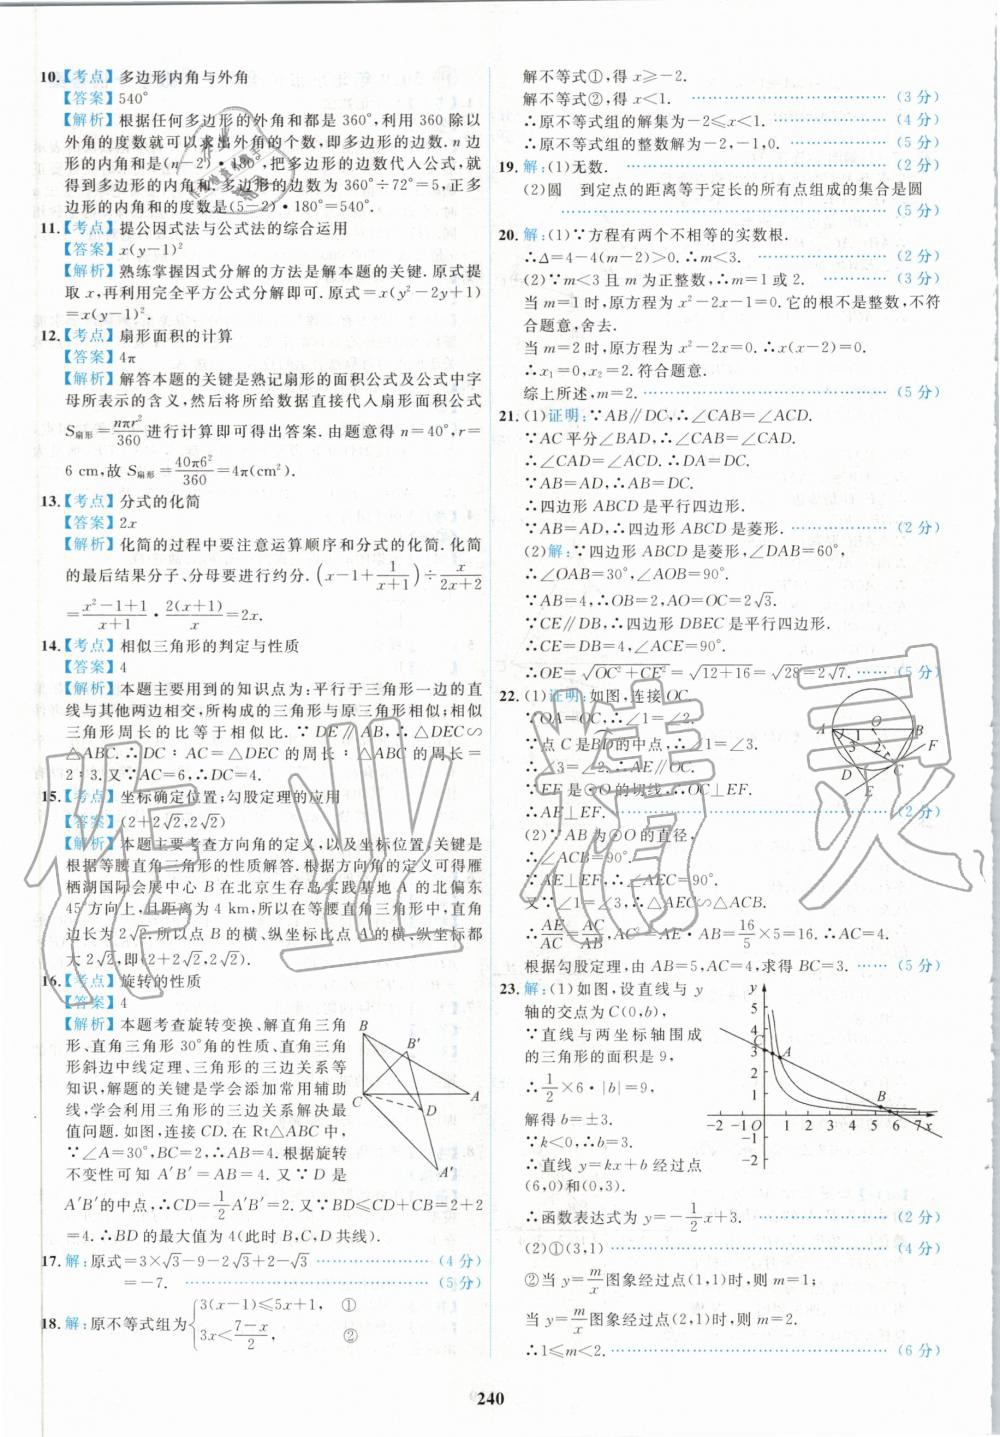 10.【考点】多边形内角与外角
【答案】540°
【解析】根据任何多边形的外角和都是360°,利用360除以
外角的度数就可以求出外角的个数,即多边形的边数.n边
形的内角和是(n-2)·180°,把多边形的边数代入公式,就
得到多边形的内角和.多边形的边数为360°÷72°=5,正多
边形的内角和的度数是(5-2)·180°=540°.
11.【考点】提公因式法与公式法的综合运用
【答案】x(y-1)²
【解析】熟练掌握因式分解的方法是解本题的关键.原式提
取x,再利用完全平方公式分解即可.原式=x(y²-2y+1)
=x(y-1)².
12.【考点】扇形面积的计算
【答案】4π
【解析】解答本题的关键是熟记扇形的面积公式及公式中字
母所表示的含义,然后将所给数据直接代入扇形面积公式
S扇形=nπr²/360进行计算即可得出答案.由题意得n=40°,r=
6 cm,故S扇形=40π6²/360=4π(cm²).
13.【考点】分式的化简
【答案】2x
【解析】化简的过程中要注意运算顺序和分式的化简.化简
的最后结果分子、分母要进行约分.(x-1+1/(x+1))÷x/(2x+2)
=(x²-1+1)/(x+1)·2(x+1)/x=2x.
14.【考点】相似三角形的判定与性质
【答案】4
【解析】本题主要用到的知识点为:平行于三角形一边的直
线与其他两边相交,所构成的三角形与原三角形相似;相似
三角形周长的比等于相似比.∵DE∥AB,∴△DEC∽
△ABC.∴DC∶AC=△DEC的周长∶△ABC的周长=
2∶3.又∵AC=6,∴DC=4.
15.【考点】坐标确定位置;勾股定理的应用
【答案】(2+2√2,2√2)
【解析】本题主要考查方向角的定义,以及坐标位置,关键是
根据等腰直角三角形的性质解答.根据方向角的定义可得雁
栖湖国际会展中心B在北京生存岛实践基地A的北偏东
45°方向上,且距离为4 km,所以在等腰直角三角形中,直角
边长为2√2.所以点B的横、纵坐标比点A的横、纵坐标都
大2√2,即(2+2√2,2√2).
16.【考点】旋转的性质
【答案】4
【解析】本题考查旋转变换、解直角三角
形、直角三角形30°角的性质、直角三角
形斜边中线定理、三角形的三边关系等
知识,解题的关键是学会添加常用辅助
线,学会利用三角形的三边关系解决最
值问题.如图,连接CD.在Rt△ABC中,
∵∠A=30°,BC=2,∴AB=4.根据旋转
不变性可知A′B′=AB=4.又∵D是
A′B′的中点,∴CD=1/2A′B′=2.又∵BD≤CD+CB=2+2
=4.∴BD的最大值为4(此时B,C,D共线).
B
B′
C
A
D
A′
17.解:原式=3×√3-9-2√3+2-√3 (4分)
=-7. (5分)
18.解:原不等式组为{3(x-1)≤5x+1, ①
3x<(7-x)/2, ②
解不等式①,得x≥-2.
解不等式②,得x<1. (3分)
∴原不等式组的解集为-2≤x<1. (4分)
∴原不等式组的整数解为-2,-1,0. (5分)
19.解:(1)无数. (2分)
(2)圆 到定点的距离等于定长的所有点组成的集合是圆
(5分)
20.解:(1)∵方程有两个不相等的实数根.
∴Δ=4-4(m-2)>0.∴m<3. (2分)
(2)∵m<3且m为正整数,∴m=1或2. (3分)
当m=1时,原方程为x²-2x-1=0.它的根不是整数,不符
合题意,舍去.
当m=2时,原方程为x²-2x=0.∴x(x-2)=0.
∴x₁=0,x₂=2.符合题意.
综上所述,m=2. (5分)
21.(1)证明:∵AB∥DC,∴∠CAB=∠ACD.
∵AC平分∠BAD,∴∠CAB=∠CAD.
∴∠CAD=∠ACD.∴DA=DC.
∵AB=AD,∴AB=DC.
∴四边形ABCD是平行四边形.
∵AB=AD,∴四边形ABCD是菱形. (2分)
(2)解:∵四边形ABCD是菱形,∠DAB=60°,
∴∠OAB=30°,∠AOB=90°.
∵AB=4,∴OB=2,AO=OC=2√3.
∵CE∥DB,∴四边形DBEC是平行四边形.
∴CE=DB=4,∠ACE=90°.
∴OE=√(OC²+CE²)=√(12+16)=√28=2√7. (5分)
22.(1)证明:如图,连接OC.
∵OA=OC,∴∠1=∠2.
∵点C是BD的中点,∴∠1=∠3.
∴∠3=∠2.∴AE∥OC.
∵EF是⊙O的切线,∴OC⊥EF.
∴AE⊥EF. (2分)
(2)∵AB为⊙O的直径,
∴∠ACB=90°.
∵AE⊥EF,∴∠AEC=90°.
又∵∠1=∠3,∴△AEC∽△ACB.
∴AE/AC=AC/AB.∴AC²=AE·AB=16/5×5=16.∴AC=4.
根据勾股定理,由AB=5,AC=4,求得BC=3. (5分)
A
O
B
1
2
3
F
C
D
E
23.解:(1)如图,设直线与y
轴的交点为C(0,b),
∵直线与两坐标轴围成
的三角形的面积是9,
∴1/2×6·|b|=9,
解得b=±3.
∵k<0,∴b=3.
∴直线y=kx+b经过点
(6,0)和(0,3).
∴函数表达式为y=-1/2x+3. (2分)
(2)①(3,1) (4分)
②当y=m/x图象经过点(1,1)时,则m=1;
当y=m/x图象经过点(2,1)时,则m=2.
∴1≤m<2. (6分)
y
5
4
3
2
1
C
A
B
-2 -1 O 1 2 3 4 5 6 7 x
-1
-2
240
作业精灵